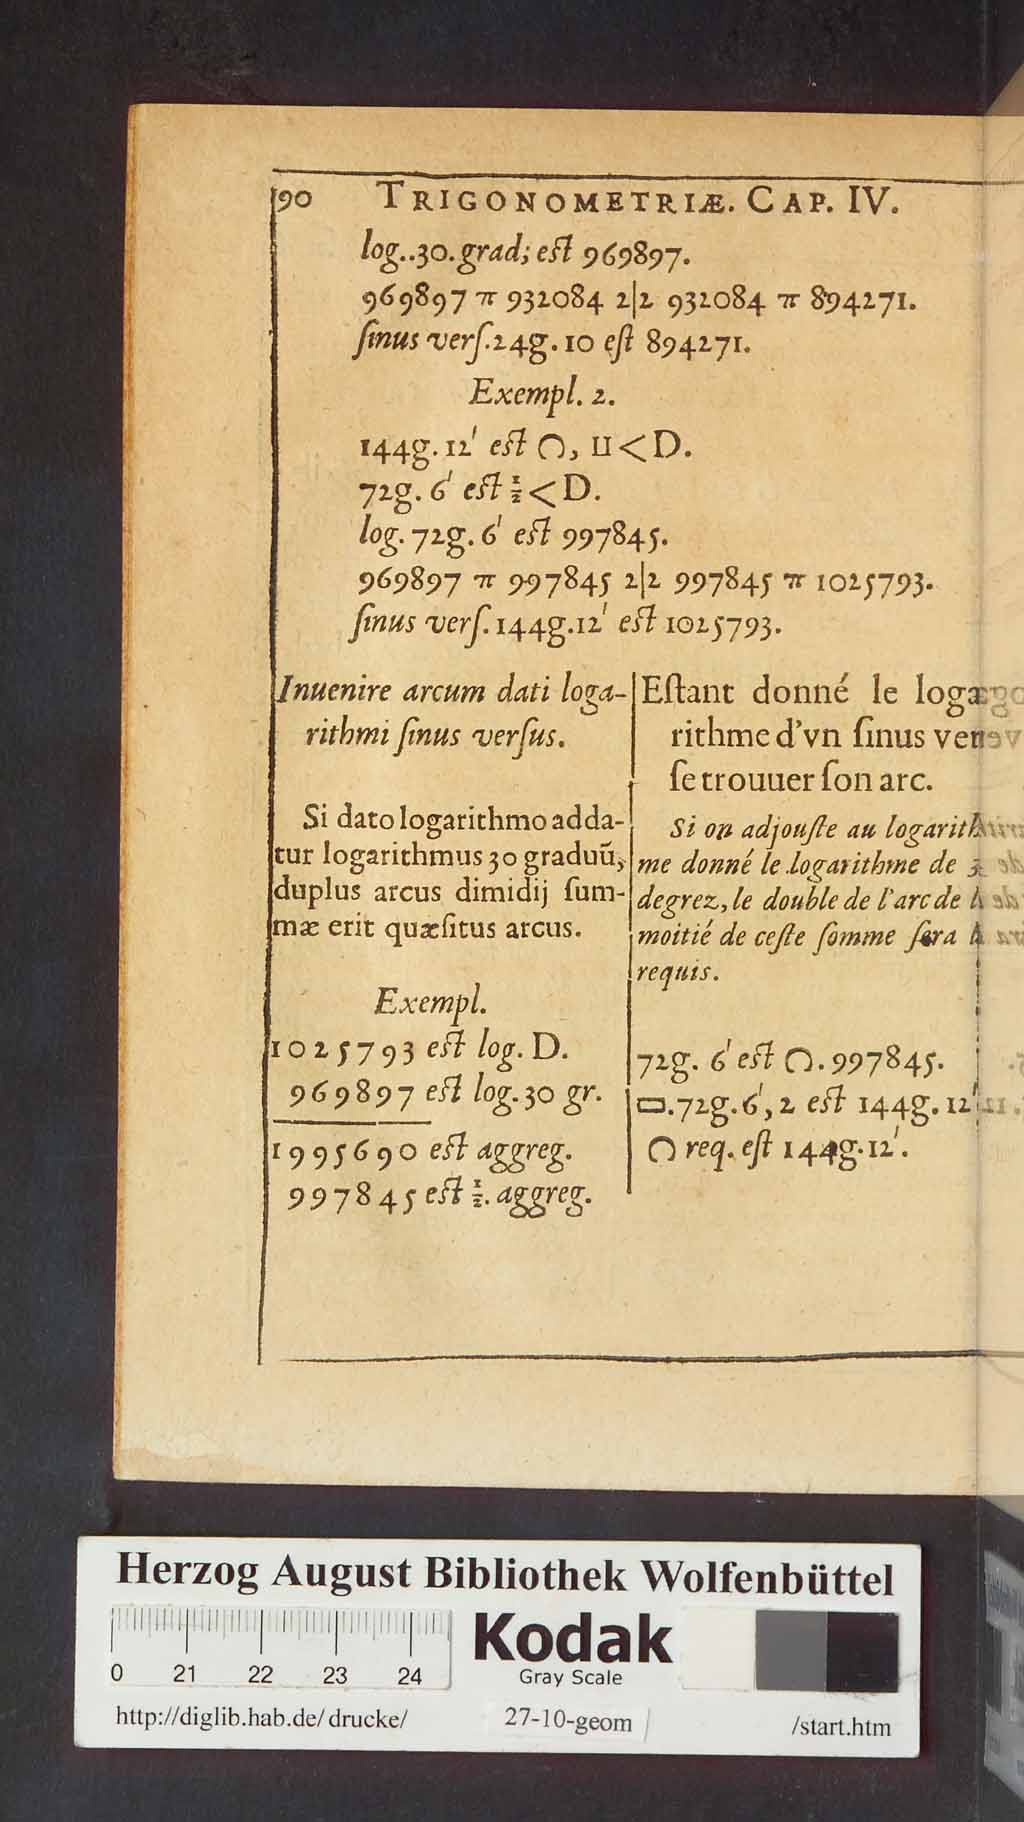 90 TRIGONOMETRIÆ. CAP. IV.
log..30.grad; eſt 969897.
969897 π 932084 2|2 932084 π 894271.
ſinus verſ.24g.10 eſt 894271.
Exempl. 2.
144g.12' eſt ∩, ⊔<D.
72g.6' eſt ½<D.
log.72g.6' eſt 997845.
969897 π 997845 2|2 997845 π 1025793.
ſinus verſ.144g.12' eſt 1025793.
Inuenire arcum dati loga-
rithmi ſinus verſus.
Si dato logarithmo adda-
tur logarithmus 30 graduū,
duplus arcus dimidij ſum-
mæ erit quæſitus arcus.
Exempl.
1025793 eſt log. D.
969897 eſt log.30 gr.
1995690 eſt aggreg.
997845 eſt ½. aggreg.
Eſtant donné le loga
rithme d'vn ſinus ver
ſe trouuer ſon arc.
Si on adjouſte au logarith
me donné le logarithme de
degrez, le double de l'arc de
moitié de ceſte ſomme ſera
requis.
72g. 6' eſt ∩.997845.
▭.72g.6', 2 eſt 144g.12'
∩ req. eſt 144g.12'.
Herzog August Bibliothek Wolfenbüttel
0 21 22 23 24
Kodak
Gray Scale
http://diglib.hab.de/drucke/ 27-10-geom /start.htm